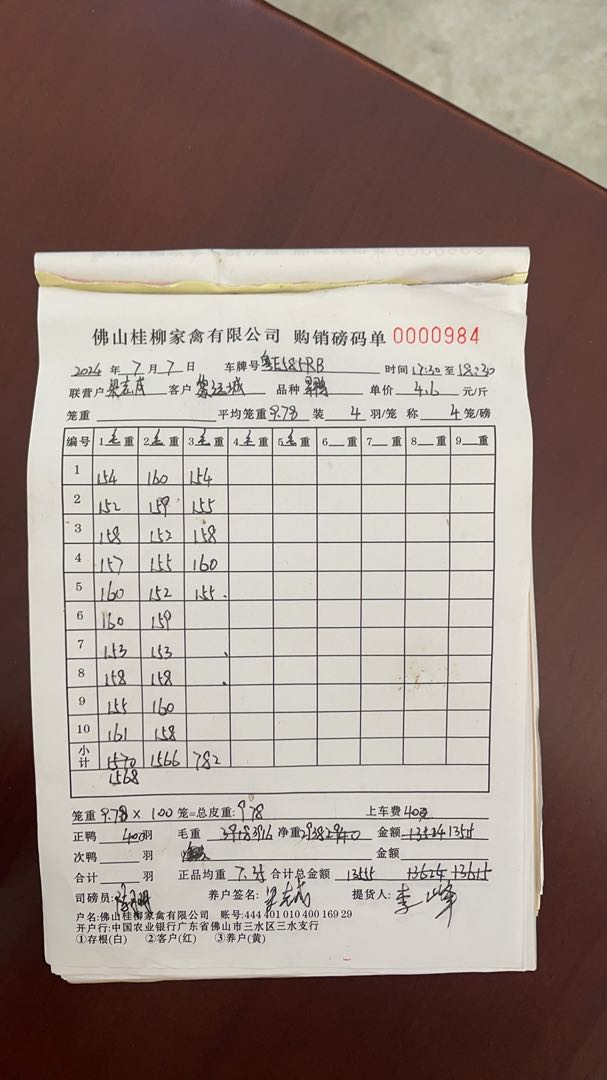 佛山桂柳家禽有限公司 购销磅码单 0000984
2024年7月7日 车牌号 时间17:30至18:30
联营户 客户 品种 单价4.6元/斤
笼重 平均笼重9.78 装4羽/笼 称4笼/磅
编号 1毛重 2毛重 3毛重 4毛重 5毛重 6 重 7 重 8 重 9 重
1 154 160 154
2 152 159 155
3 158 152 158
4 157 155 160
5 160 152 155
6 160 159
7 153 153
8 158 158
9 155 160
10 161 158
小计 1570 1566 782
1568
笼重9.78×100笼=总皮重:978 上车费400
正鸭400羽 毛重3918 3916 净重2938 2940 金额
次鸭 羽 金额
合计 羽 正品均重7.35 合计总金额 13555 13624 13615
司磅员: 养户签名: 提货人:
户名:佛山桂柳家禽有限公司 账号:444 401 010 400 169 29
开户行:中国农业银行广东省佛山市三水区三水支行
①存根(白) ②客户(红) ③养户(黄)